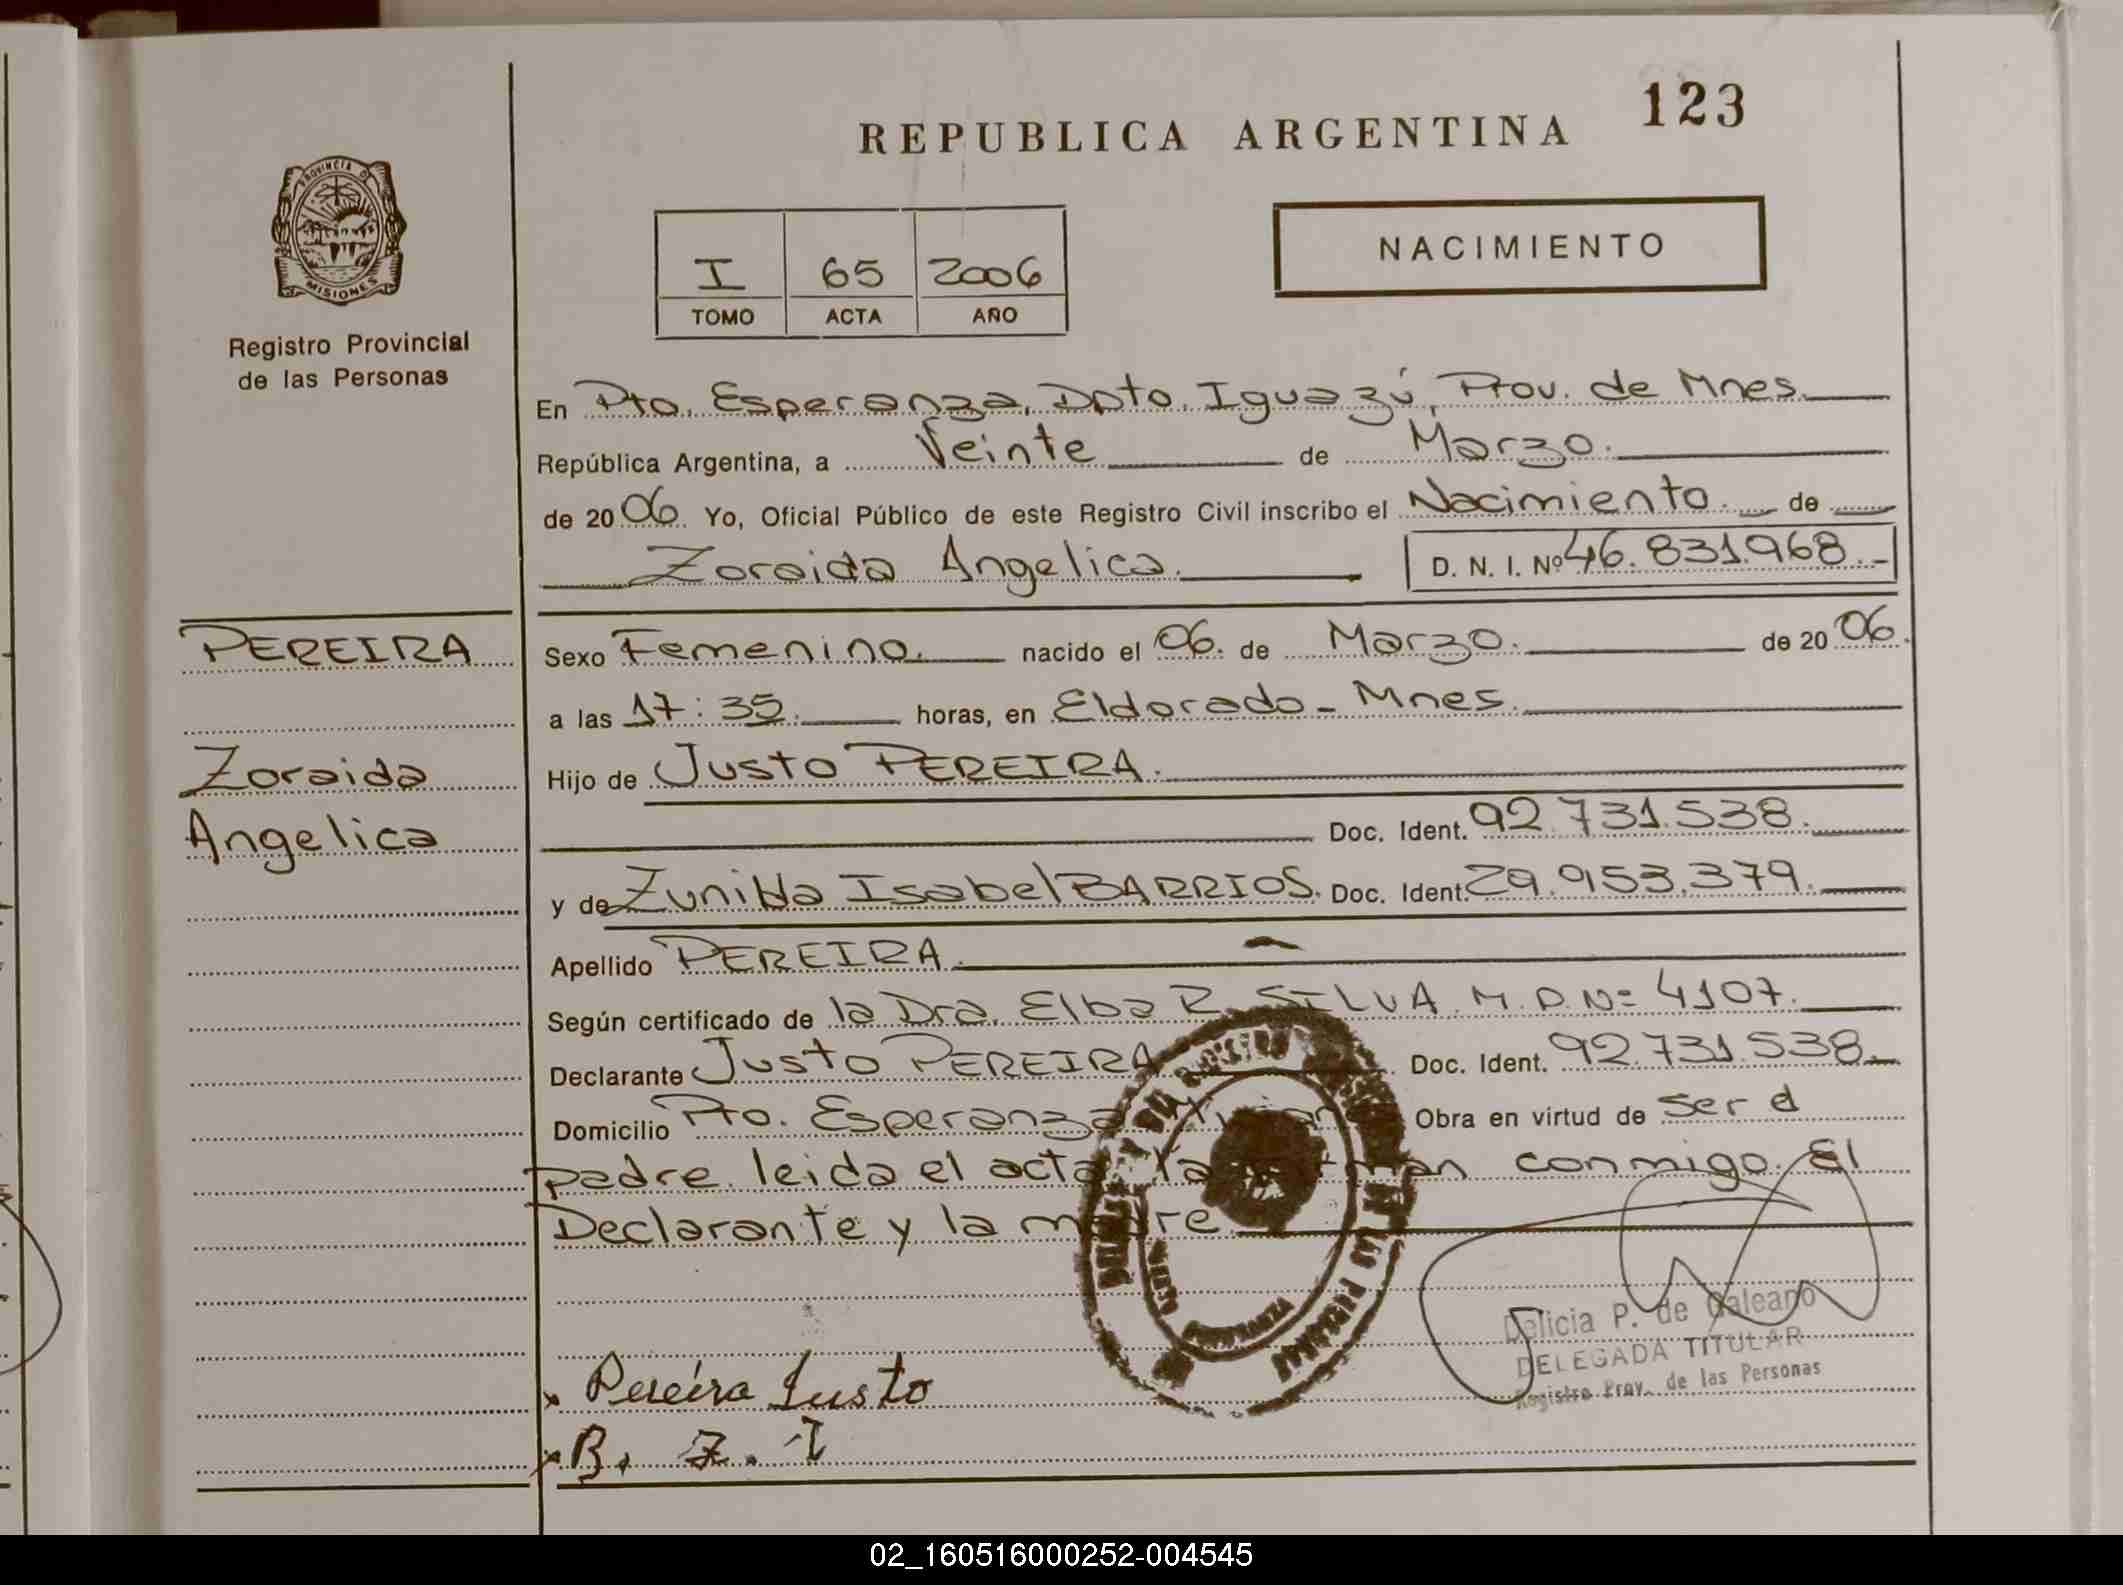 123
REPUBLICA ARGENTINA
PROVINCIA DE
MISIONES
NACIMIENTO
I 65 2006
TOMO ACTA AÑO
Registro Provincial
de las Personas
En Pto. Esperanza, Dpto. Iguazú, Prov. de Mnes.
República Argentina, a Veinte de Marzo.
de 2006. Yo, Oficial Público de este Registro Civil inscribo el Nacimiento. de
Zoraida Angelica. D. N. I. Nº 46.831.968.-
PEREIRA
Zoraida
Angelica
Sexo Femenino. nacido el 06. de Marzo. de 2006.
a las 17:35. horas, en Eldorado - Mnes.
Hijo de Justo PEREIRA.
Doc. Ident. 92.731.538.
y de Zunilda Isabel BARRIOS. Doc. Ident. 29.953.379.
Apellido PEREIRA.
Según certificado de la Dra. Elba R. SILVA. M.P.Nº 4107.
Declarante Justo PEREIRA Doc. Ident. 92.731.538.-
Domicilio Pto. Esperanza Obra en virtud de ser el
padre. leida el acta, la conmigo. El
Declarante y la madre.
Delicia P. de Galeano
DELEGADA TITULAR
Registro Prov. de las Personas
x Pereira Justo
x B. Z. I
02_160516000252-004545